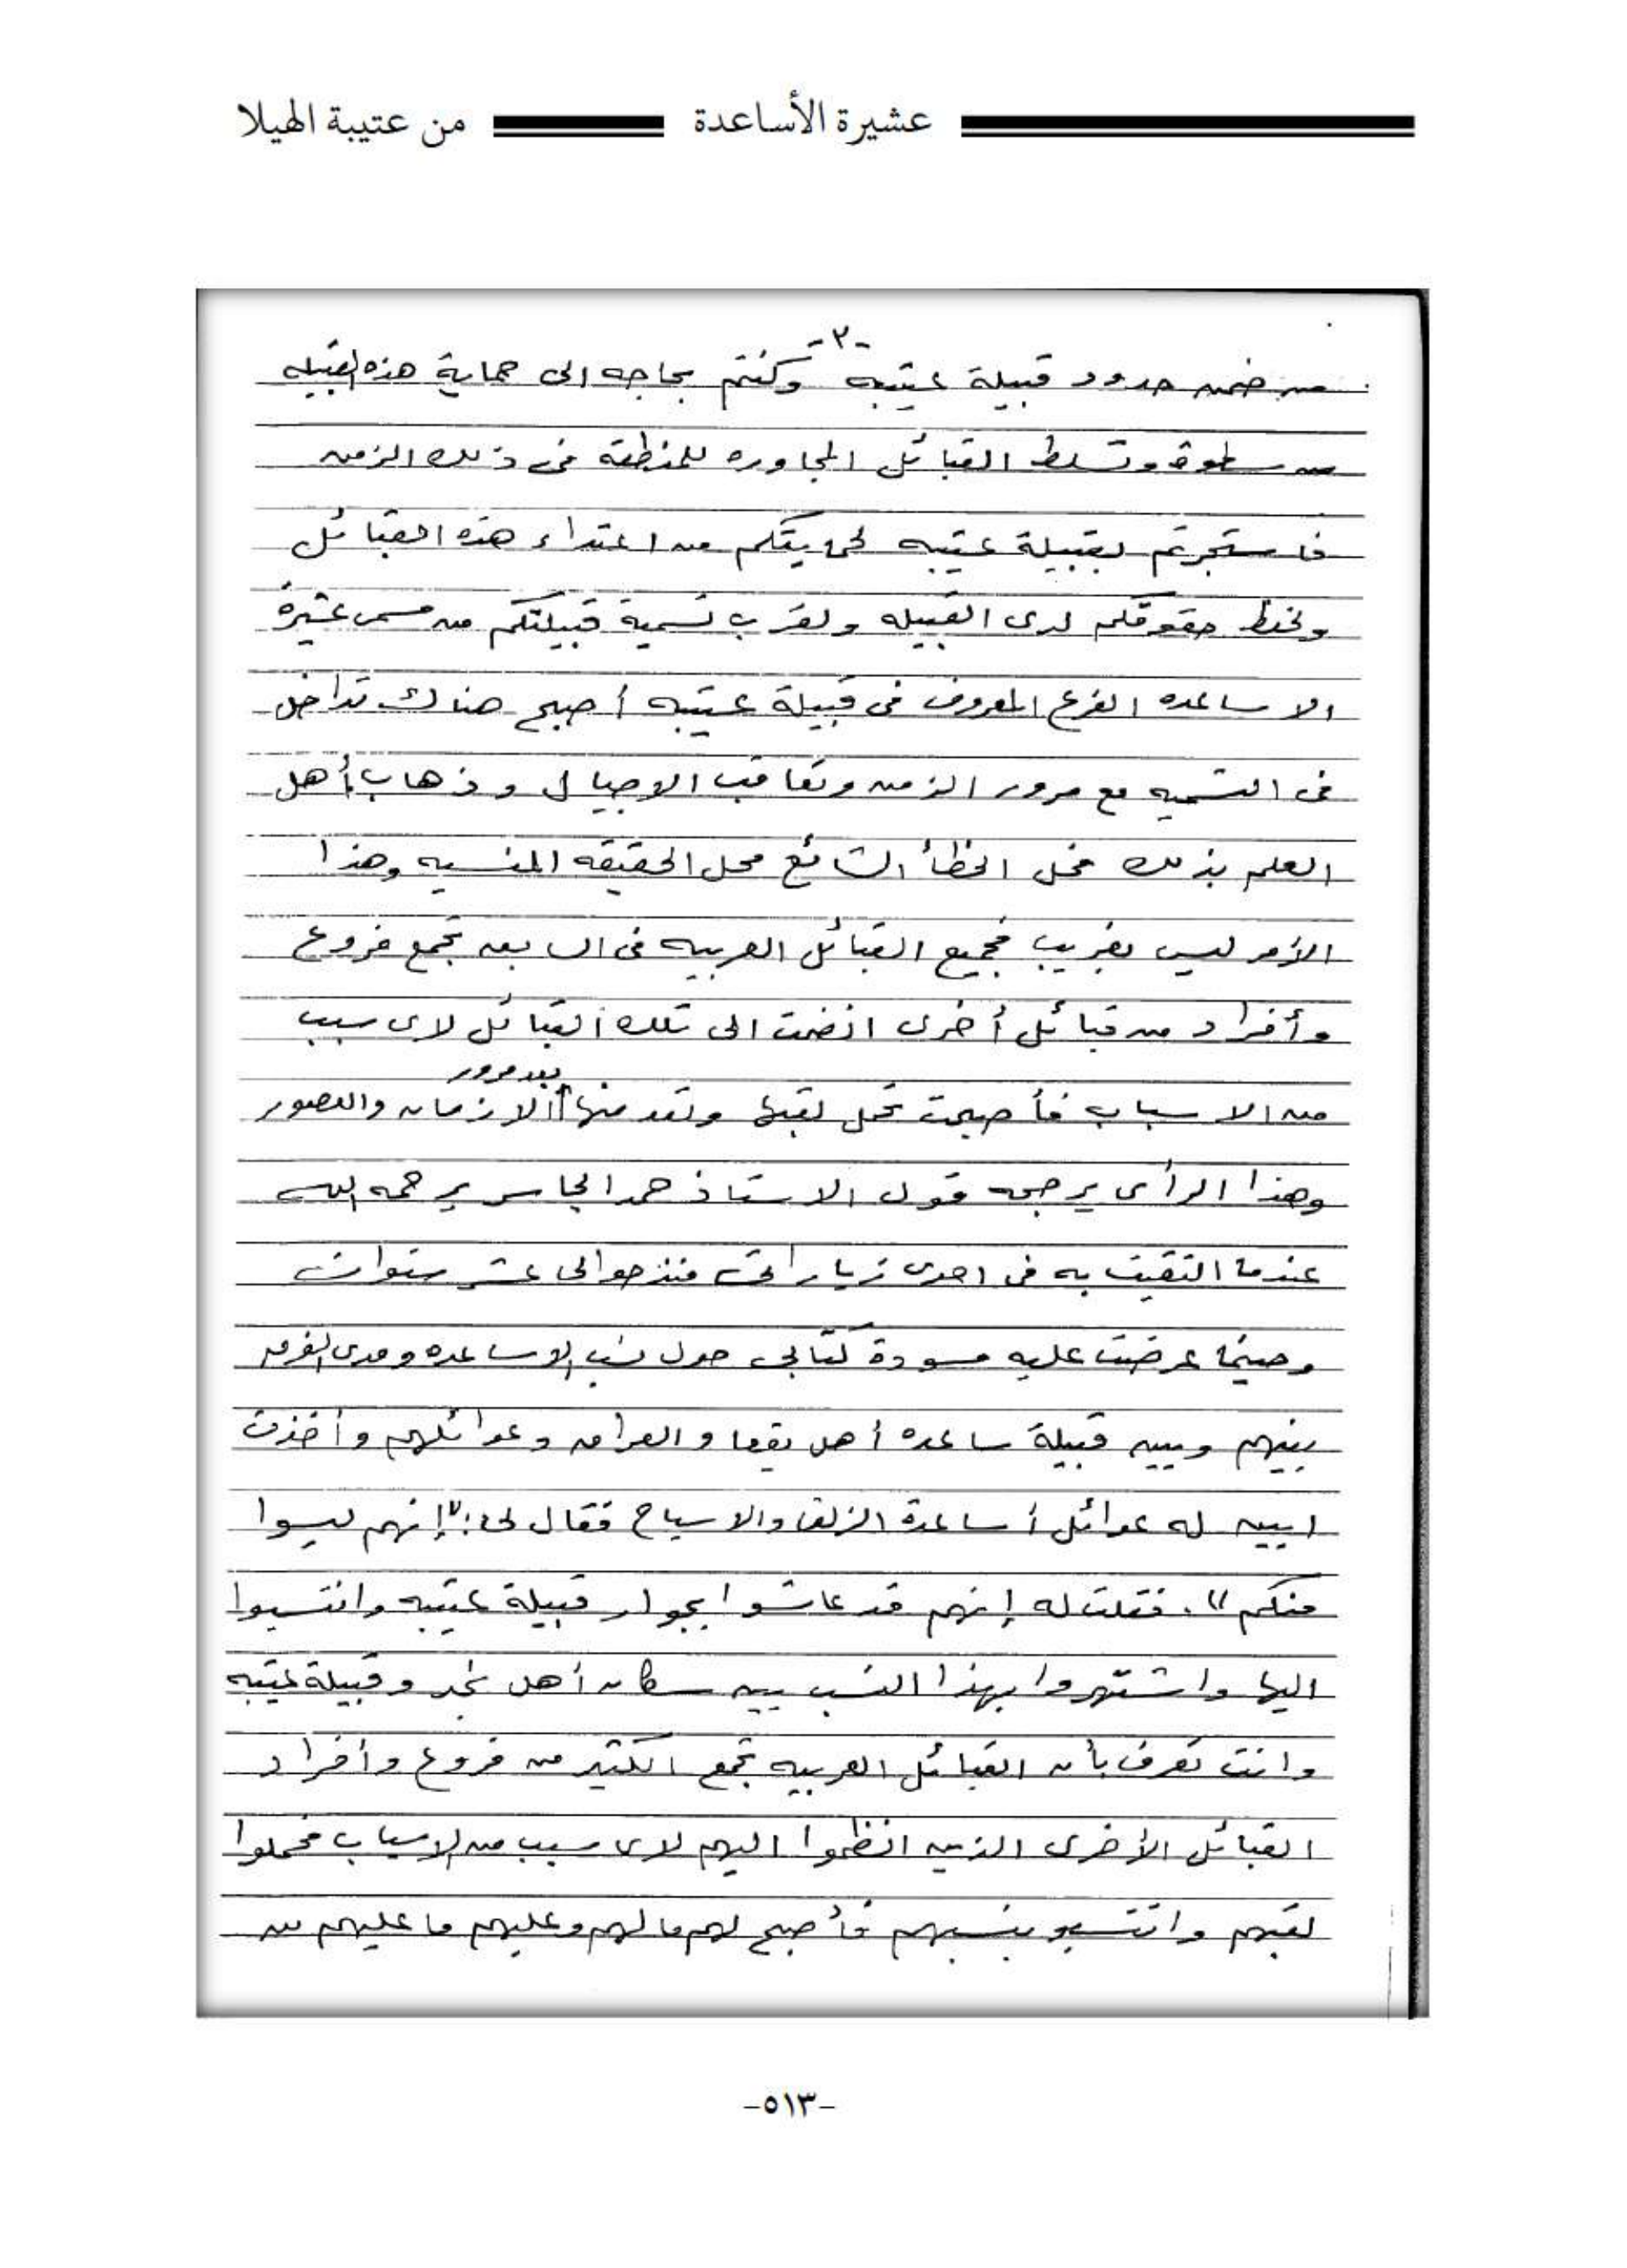 عشيرة الأساعدة من عتيبة الهيلا
-٢-
من ضمن حدود قبيلة عتيبه وكنتم بحاجه الى حماية هذه القبيله
من سطوة وتسلط القبائل المجاوره للمنطقة في ذلك الزمن
فاستجرتم بقبيلة عتيبه لحمايتكم من اعتداء هذه القبائل
ولحفظ حقوقكم لدى القبيله ولقرب تسمية قبيلتكم من مسمى عشيرة
الاساعده الفرع المعروف في قبيلة عتيبه أصبح هناك تداخل
في التسميه مع مرور الزمن وتعاقب الاجيال وذهاب أهل
العلم بذلك فحل الخطأ الشائع محل الحقيقه المنسيه وهذا
الأمر ليس بغريب فجميع القبائل العربيه في السابق تجمع فروع
وأفراد من قبائل أخرى انضمت الى تلك القبائل لاى سبب
بعد مرور
من الاسباب فأصبحت تحمل لقبها وتعد منها الازمان والعصور
وهذا الرأى يرجحه قول الاستاذ حمد الجاسر يرحمه الله
عندما التقيت به في احدى زياراتي منذ حوالى عشر سنوات
وحينما عرضت عليه مسودة كتابي حول نسب الاساعده ومدى الفرق
بينهم وبين قبيلة ساعده أهل بقعا والعراق وعوائلهم وأخذت
ابين له عوائل أساعدة الزلفى والاسياح فقال لي: "إنهم ليسوا
منكم". فقلت له إنهم قد عاشوا بجوار قبيلة عتيبه وانتسبوا
اليها واشتهروا بهذا النسب بين سكان أهل نجد وقبيلة عتيبه
وانت تعرف بأن القبائل العربيه تجمع الكثير من فروع وأفراد
القبائل الأخرى الذين انظموا اليهم لاى سبب من الاسباب فحملوا
لقبهم وانتسبو بنسبهم فأصبح لهم مالهم وعليهم ما عليهم من
-٥١٣-